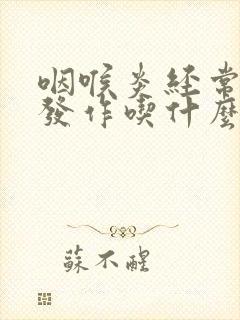 咽喉炎經常
發作喫什麼
蘇不醒